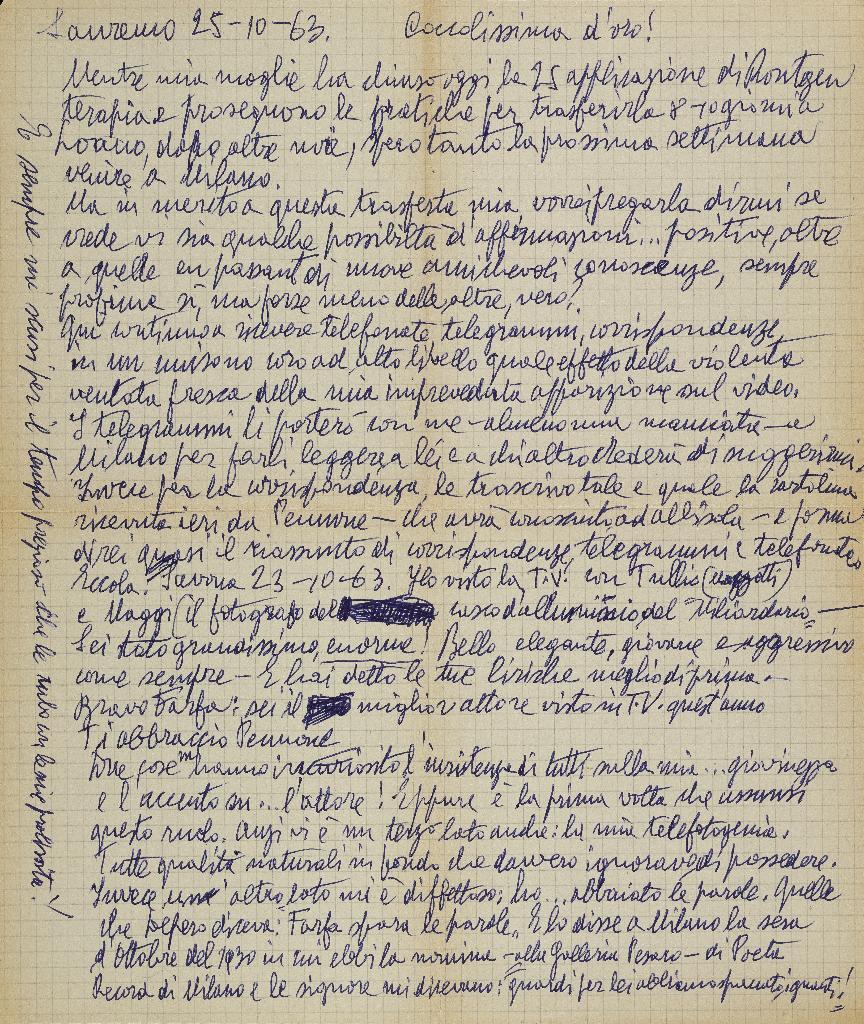 Sanremo 25-10-63. Coccolissima d'oro!
Mentre mia moglie ha chiuso oggi la 25 applicazione di Röntgen
terapia e proseguono le pratiche per trasferirla 8-10 giorni a
Loano, dopo altre noie, spero tanto la prossima settimana
venire a Milano.
Ma in merito a questa trasferta mia vorrei pregarla dirmi se
vede vi sia qualche possibiltà d'affermazioni... positive, oltre
a quelle en passant di nuove amichevoli conoscenze, sempre
proficue sì, ma forse meno delle altre, vero?
Qui continuo a ricevere telefonate, telegrammi, corrispondenze,
in un unisono coro ad alto livello quale effetto della violenta
ventata fresca della mia impreveduta apparizione sul video.
I telegrammi li porterò con me - almeno una manciata - a
Milano per farli leggere a lei e a chi altro crederà di suggerirmi.
Invece per la corrispondenza, le trascrivo tale e quale la cartolina
ricevuta ieri da Pennone - che avrà conosciuto ad Albisola - e forma
direi quasi il riassunto di corrispondenze telegrammi e telefonate
Eccola. Savona 23-10-63. Ho visto la T.V. con Tullio (Mazzotti)
e Maggi (il fotografo del casco d'alluminio del Miliardario -
Sei stato grandissimo, enorme! Bello elegante, giovane e aggressivo
come sempre - E hai detto le tue liriche meglio di prima. -
Bravo Farfa: sei il miglior attore visto in T.V. quest'anno
Ti abbraccio Pennone
Due cose m'hanno incuriosito l'insistenza di tutti sulla mia... giovinezza
e l'accento su... l'attore! Eppure è la prima volta che assunsi
questo ruolo. Anzi vi è un terzo lato anche: la mia telefotogenia.
Tutte qualità naturali in fondo che davvero ignoravo di possedere.
Invece un altro lato mi è diffettoso: ho... abbaiato le parole. Quelle
che Depero diceva: "Farfa spara le parole". E lo disse a Milano la sera
d'Ottobre del 1930 in cui ebbi la nomina - alla Galleria Pesaro - di Poeta
Record di Milano e le signore mi dicevano: "guardi per lei abbiamo spaccato i guanti!"
E sempre mi scusi per il tempo prezioso che le rubo con la mia prolissità!